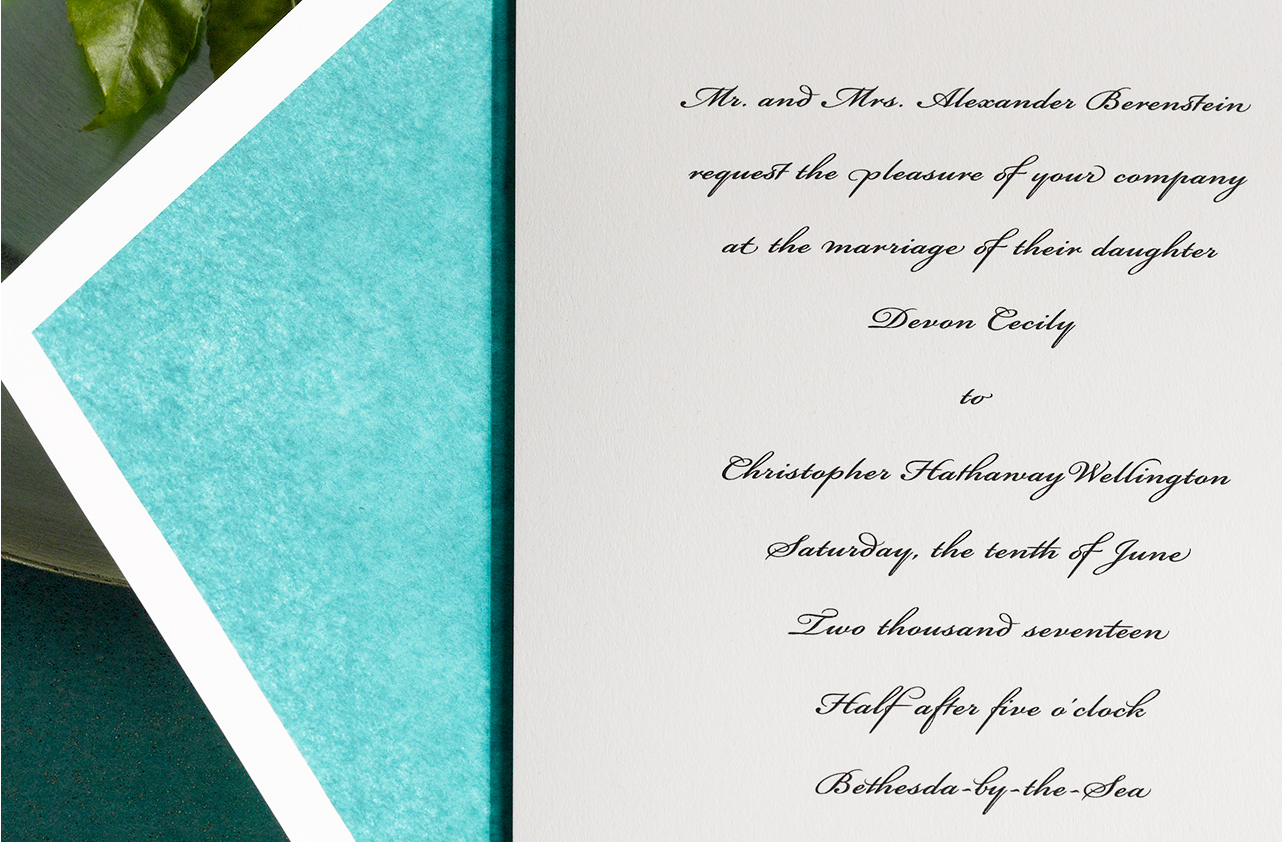 Mr. and Mrs. Alexander Berenstein
request the pleasure of your company
at the marriage of their daughter
Devon Cecily
to
Christopher Hathaway Wellington
Saturday, the tenth of June
Two thousand seventeen
Half after five o'clock
Bethesda-by-the-Sea